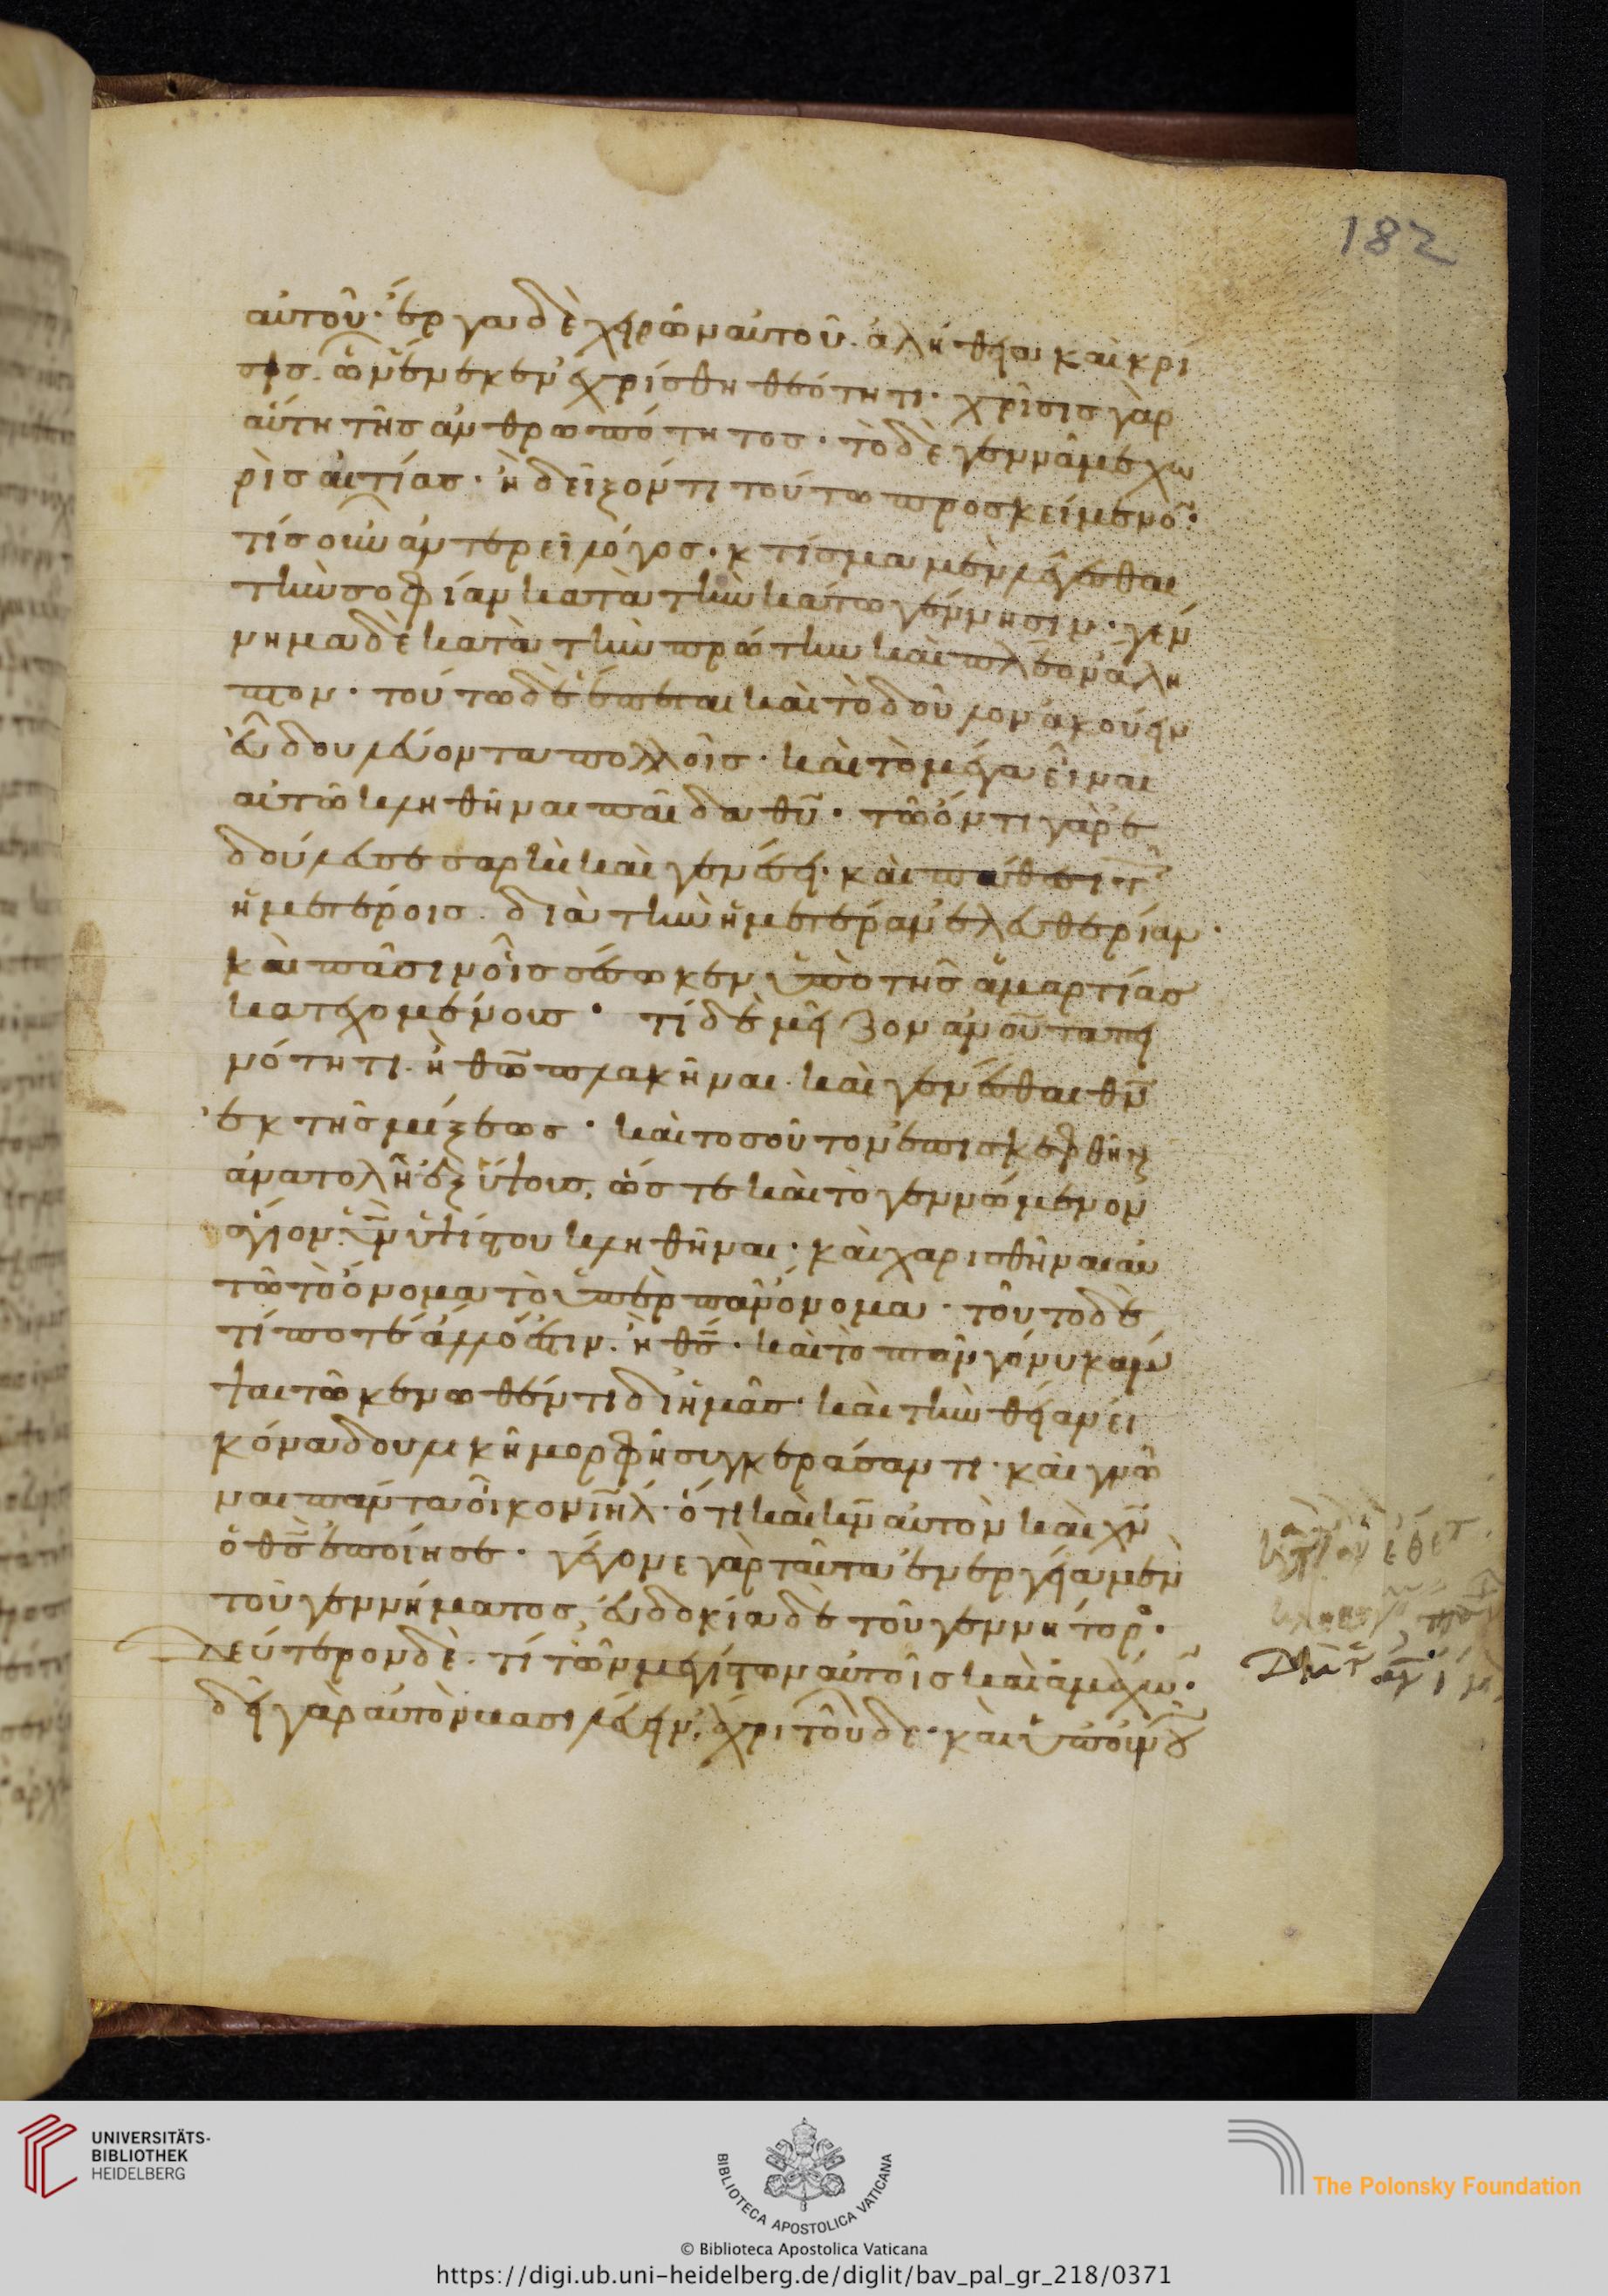 182
αὐτοῦ· ἔργα δὲ χειρῶν αὐτοῦ. ἀλήθεια καὶ κρί
σις. ὧν ἕνεκεν ἐχρίσθη θεότητι· χρίσις γὰρ
αὕτη τῆς ἀνθρωπότητος· τὸ δὲ γεννᾷ με χω
ρὶς αἰτίας· ἢ δεῖξόν τι τούτω προσκείμενο̅·
τίς οὖν ἀντερεῖ λόγος· κτίσμα μὲν λέγεσθαι
τὴν σοφίαν κατὰ τὴν κάτω γέννησιν· γέν
νημα δὲ κατὰ τὴν πρώτην καὶ πλέον ἄλη
πτον· τούτω δὲ ἕπεται καὶ τὸ δοῦλον ἀκούειν
εὖ δουλεύοντα πολλοῖς· καὶ τὸ μέγα εἶναι
αὐτῶ κληθῆναι παῖδα θυ̅· τῶ ὄντι γὰρ ἐ
δούλευσε σαρκὶ καὶ γενέσει· καὶ πάθεσι τ
ἡμετέροις. διὰ τὴν ἡμετέραν ἐλευθερίαν·
καὶ πᾶσιν οἷς σέσωκεν ὑπὸ τῆς ἁμαρτίας
κατεχομένοις· τί δὲ μεῖζον ἀνου̅ ταπει
νότητι. ἢ θω̅ πλακῆναι. καὶ γενέσθαι θν̅
ἐκ τῆς μίξεως· καὶ τοσοῦτον ἐπισκεφθῆναι
ἀνατολῆ ἐξ ὕψους, ὥστε καὶ τὸ γεννώμενον
ἅγιον. υν̅ ὑψίστου κληθῆναι· καὶ χαρισθῆναι αὐ
τῶ τὸ ὄνομα τὸ ὑπὲρ πᾶν ὄνομα· τοῦτο δὲ
τί ποτε ἄλλό ἐστιν. ἢ θς̅· καὶ τὸ πᾶν γόνυ κάμψ
ψαι τῶ κενωθέντι δι ἡμᾶς· καὶ τὴν θείαν εἰ
κόνα δουλικῆ μορφῆ συγκεράσαντι· καὶ γνῶ
ναι πάντα οἶκον ιηλ̅· ὅτι καὶ κν̅ αὐτὸν καὶ χν̅
ὁ θς̅ ἐποίησε· γέγονε γὰρ ταῦτα ἐνεργεία μὲν
τοῦ γεννήματος, εὐδοκία δὲ τοῦ γεννήτορος·
Δεύτερον δὲ. τί τῶν μεγίστων αὐτοῖς καὶ ἀμάχων·
δεῖ γὰρ αὐτὸν βασιλεύειν, ἄχρι τοῦδε· καὶ ὑπ οὐνου
UNIVERSITÄTS-
BIBLIOTHEK
HEIDELBERG
BIBLIOTECA APOSTOLICA VATICANA
The Polonsky Foundation
© Biblioteca Apostolica Vaticana
https://digi.ub.uni-heidelberg.de/diglit/bav_pal_gr_218/0371